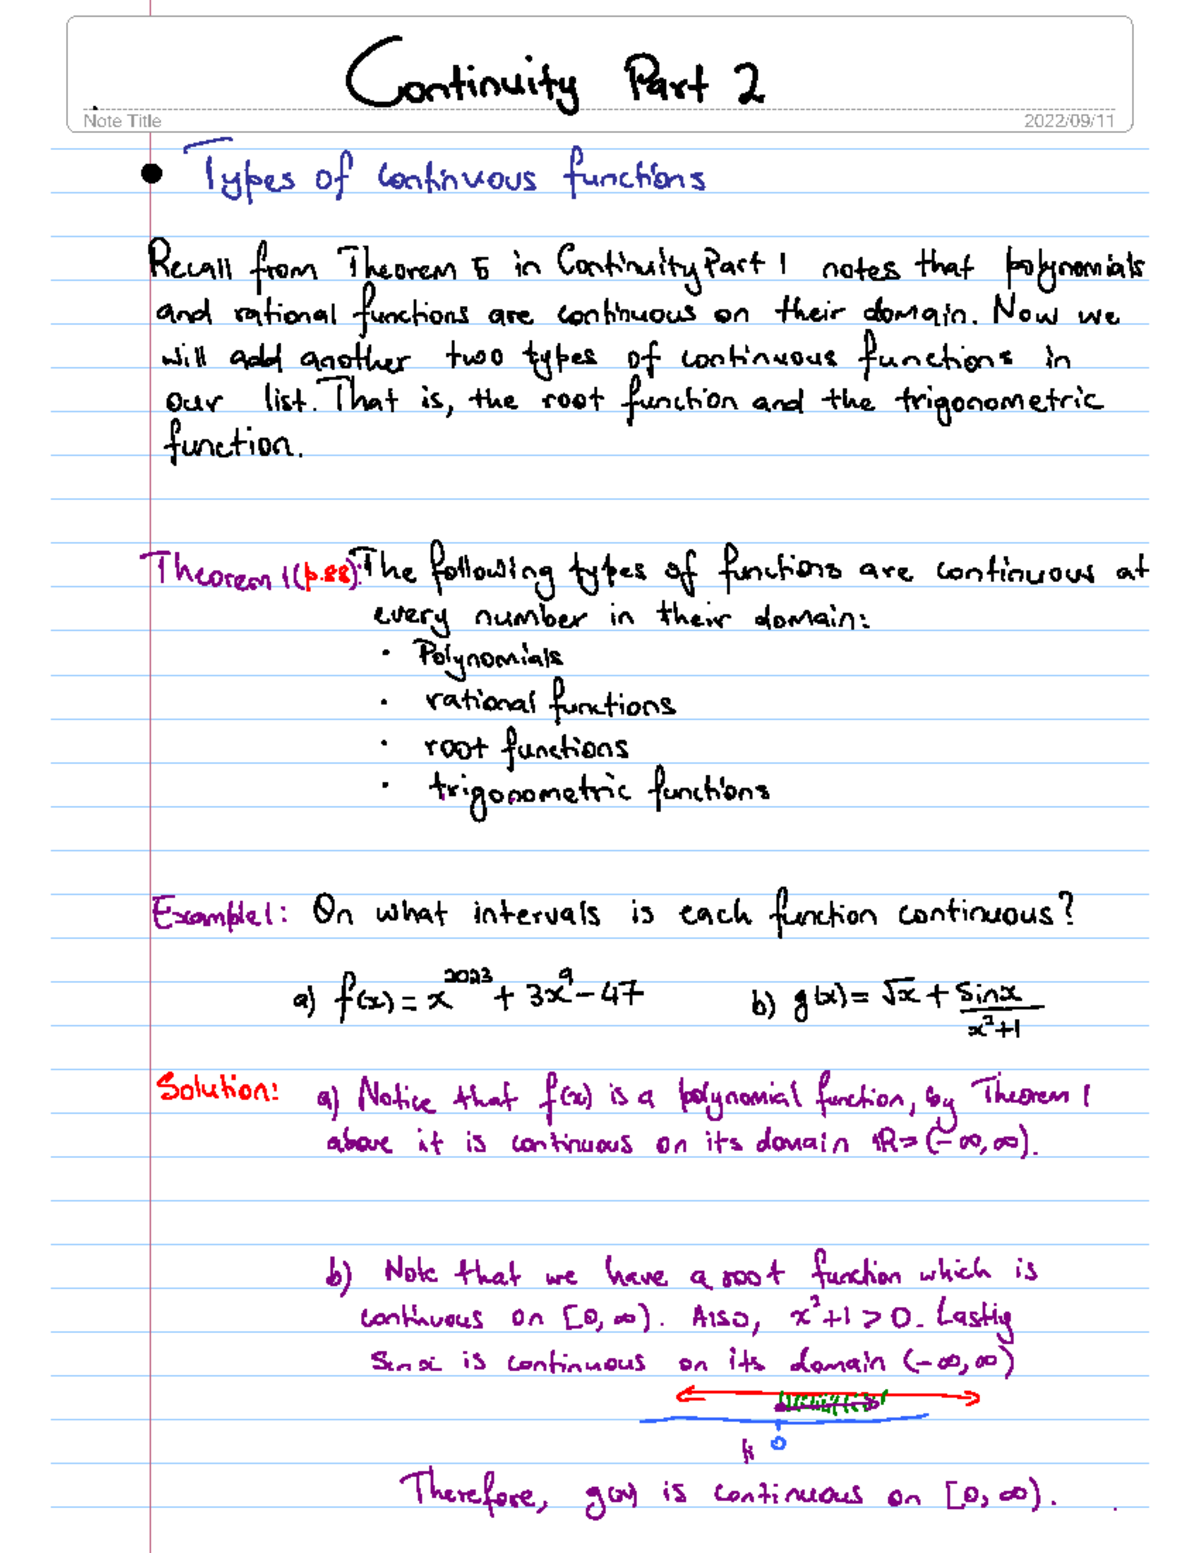 Continuity Part 2
Note Title
2022/09/11
• Types of continuous functions
Recall from Theorem 5 in Continuity Part 1 notes that polynomials
and rational functions are continuous on their domain. Now we
will add another two types of continuous functions in
our list. That is, the root function and the trigonometric
function.
Theorem 1 (p.88): The following types of functions are continuous at
every number in their domain:
• Polynomials
• rational functions
• root functions
• trigonometric functions
Example 1: On what intervals is each function continuous?
a) f(x) = x^2023 + 3x^9 - 47 b) g(x) = √x + sinx/(x²+1)
Solution: a) Notice that f(x) is a polynomial function, by Theorem 1
above it is continuous on its domain ℝ = (-∞, ∞).
b) Note that we have a root function which is
continuous on [0, ∞). Also, x²+1 > 0. Lastly
Sin x is continuous on its domain (-∞, ∞)
0
Therefore, g(x) is continuous on [0, ∞).